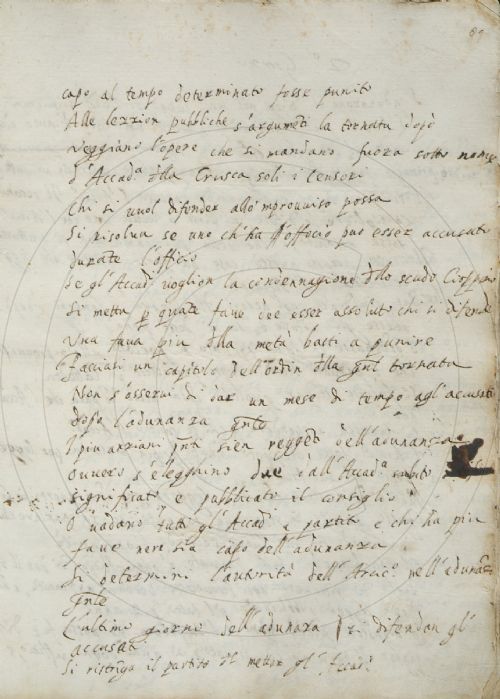 capo al tempo determinato fosse punito
Alle lezzion pubbliche s'argumēti la tornata dopo
Veggiano l'opere che si mandano fuora sotto nome
d'Accad.ª dlla Crusca soli i censori
Chi si vuol difender allo improuuiso possa
Si risolua se uno ch'ha l'officio puo esser accusato
durāte l'officio
Se gl'Accad.ⁱ voglion la condennagione dllo scudo
Si metta p quāte faue dee esser assoluto chi si difende
Una faua piu dlla metà basti a punire
Facciasi un capitolo dell'ordin dlla gnl tornata
Non s'osserui di dar un mese di tempo agl'accusati
dopo l'adunanza gnle
I piu anziani sien reggti dell'adunanza
Ouuero s'elegghino due dall'Accad.ª subito
significato e pubblicato il consiglio
O uadano tutti gl'Accad.ⁱ a partito e chi ha piu
faue nere sia capo dell'adunanza
Si determini l'autorità dell'Arcic.º nell'adunāz
gnle
L'ultimo giorno dell'adunāza si difendan gl'
accusati
Si ristringa il partito d metter gl'Accad.ⁱ